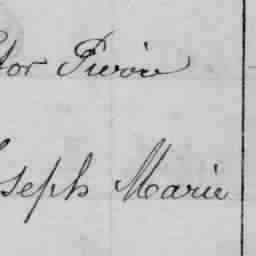 tor Pivoin
seph Marie